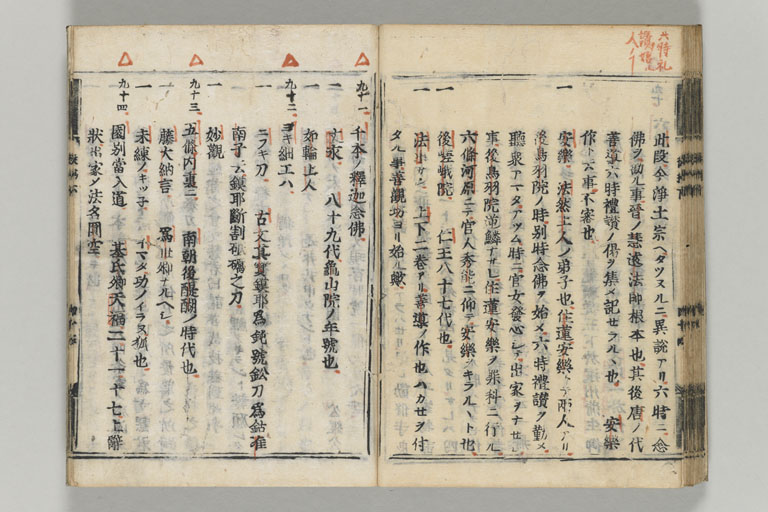 六時礼
讃
此段今淨土宗ヘタツヌルニ異說アリ六時ニ念
佛ヲ勤ル事晉ノ慧遠法師根本也其後唐ノ代
善導六時禮讃ノ偈ヲ集メ記セラルヽ也 安樂
作ト云事不審也
一 安樂 法然上人ノ弟子也住蓮安樂トテ兩人アリ
後鳥羽院ノ時別時念佛ヲ始メ六時禮讃ヲ勤メ
聽衆アマタアツム時ニ官女發心シテ出家ヲナサセシ
事後鳥羽院逆鱗ナサレ住蓮安樂ヲ罪科ニ行ル
六條河原ニテ官人秀能ニ仰テ安樂ヲキラルヽト也
一 後嵯峨院 仁王八十七代也
一 法 上下二卷アリ善導ノ作也ハカセヲ付
タル事善觀坊ヨリ始ル歟
九十一 千本ノ釋迦念佛
一 文永 八十九代龜山院ノ年號也
一 如輪上人
九十二 ヨキ細工ハ
一 ニフキ刀 古文其實鏌耶爲鈍號鈆刀爲銛准
南子云鏌耶斷割砥礪之刀
一 妙觀
九十三 五條內裏ニ 南朝後醍醐ノ時代也
一 藤大納言 爲世卿ナルヘシ
一 未練ノキツ子 イマタ功ノイラヌ狐也
九十四 園別當入道 基氏卿天福二十一十七上辭
狀出家ス法名圓空